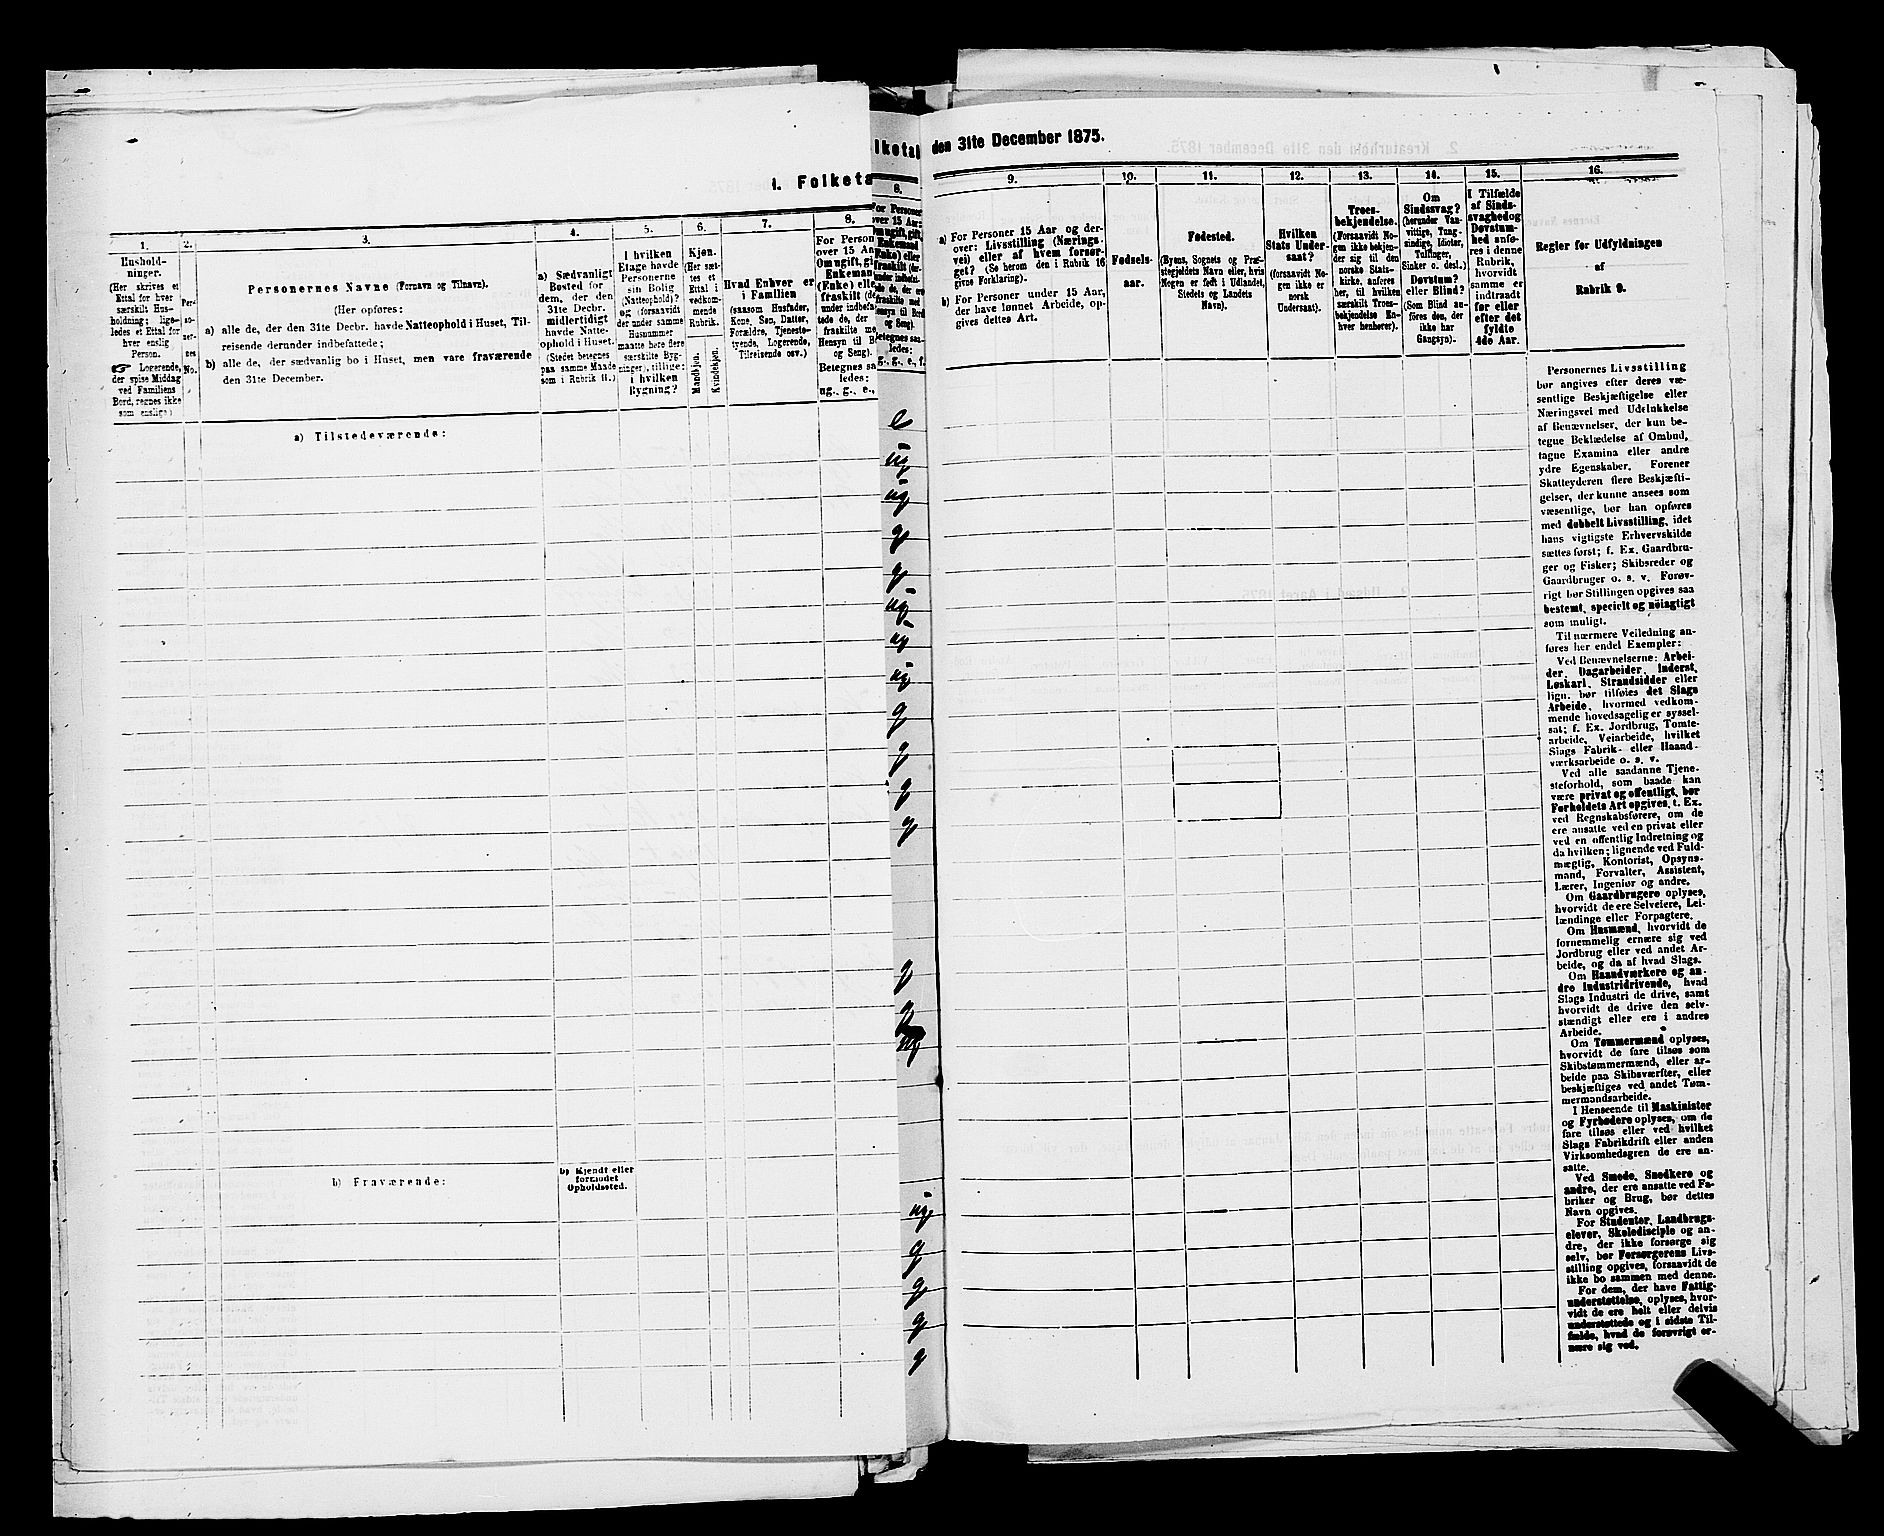 1. Folketa
lketal
den 31te December 1875.
1.
Hushold-
ninger.
(Her skrives et
Ettal for hver
særskilt Hus-
holdning; lige-
ledes et Ettal for
hver enslig
Person.
☞ Logerende,
der spise Middag
ved Familiens
Bord, regnes ikke
som enslige)
2.
Per-
so-
ner-
nes
No.
3.
Personernes Navne (Fornavn og Tilnavn).
(Her opføres:
a) alle de, der den 31te Decbr. havde Natteophold i Huset, Til-
reisende derunder indbefattede;
b) alle de, der sædvanlig bo i Huset, men vare fraværende
den 31te December.
4.
a) Sædvanligt
Bosted for
dem, der den
31te Decbr.
midlertidigt
havde Natte-
ophold i Huset.
(Stedet betegnes
paa samme Maade
som i Rubrik 11.)
5.
I hvilken
Etage havde
Personerne
sin Bolig
(Natteophold)?
og (forsaavidt
der under samme
Husnummer
maatte høre flere
særskilte Byg-
ninger), tillige:
i hvilken
Bygning?
6.
Kjøn.
(Her sæt-
tes et
Ettal i
vedkom-
mende
Rubrik.
Mandkjøn.
Kvindekjøn.
7.
Hvad Enhver er
i Familien
(saasom Husfader,
Kone, Søn, Datter,
Forældre, Tjeneste-
tyende, Logerende,
Tilreisende osv.)
8.
For Person
over 15 Aa
Om ugift, gi
Enkeman
(Enke) elle
fraskilt (de
under indbefa
tede de, der
fraskilte me
Hensyn til B
og Seng).
Betegnes sa
ledes:
ug., g., e.,
8.
For Personer
over 15 Aar:
Om ugift, gift,
Enkemand
(Enke) eller
fraskilt (der-
under indbefat-
tede de, der ere
fraskilte med
Hensyn til Bord
og Seng).
Betegnes saa-
ledes:
g., g., e., f.
9.
a) For Personer 15 Aar og der-
over: Livsstilling (Nærings-
vei) eller af hvem forsør-
get? (Se herom den i Rubrik 16
givne Forklaring).
b) For Personer under 15 Aar,
der have lønnet Arbeide, op-
gives dettes Art.
10.
Fødsels-
aar.
11.
Fødested.
(Byens, Sognets og Præ-
stegjeldets Navn eller, hvis
Nogen er født i Udlandet,
Stedets og Landets
Navn).
12.
Hvilken
Stats Under-
saat?
(forsaavidt No-
gen ikke er
norsk
Undersaat).
13.
Troes-
bekjendelse.
(Forsaavidt No-
gen ikke bekjen-
der sig til den
norske Stats-
kirke, anføres
her, til hvilken
særskilt Troes-
bekjendelse En-
hver henhører).
14.
Om
Sindssvag?
(herunder Van-
vittige, Tung-
sindige, Idioter,
Tullinger,
Sinker o. desl.)
Døvstum?
eller Blind?
(Som Blind an-
føres den, der
ikke har
Gangsyn).
15.
I Tilfælde
af Sinds-
svaghed og
Døvstum-
hed anfø-
res i denne
Rubrik,
hvorvidt
samme er
indtraadt
før eller
efter det
fyldte
4de Aar.
16.
Regler for Udfyldningen
af
Rubrik 9.
a) Tilstedeværende:
e
ug
ug
g
g
ug
ug
ug
g
g
g
g
g
g
ug
b) Fraværende:
b) Kjendt eller
formodet
Opholdssted.
ug
g
g
g
g
Personernes Livsstilling
bør angives efter deres væ-
sentlige Beskjæftigelse eller
Næringsvei med Udelukkelse
af Benævnelser, der kun be-
tegne Beklædelse af Ombud,
tagne Examina eller andre
ydre Egenskaber. Forener
Skatteyderen flere Beskjæfti-
gelser, der kunne ansees som
væsentlige, bør han opføres
med dobbelt Livsstilling, idet
hans vigtigste Erhvervskilde
sættes først; f. Ex. Gaardbru-
ger og Fisker; Skibsreder og
Gaardbruger o. s. v. Forøv-
rigt bør Stillingen opgives saa
bestemt, specielt og nöiagtigt
som muligt.
Til nærmere Veiledning an-
føres her endel Exempler:
Ved Benævnelserne: Arbei-
der, Dagarbeider, Inderst,
Løskarl, Strandsidder eller
lign. bør tilføies det Slags
Arbeide, hvormed vedkom-
mende hovedsagelig er syssel-
sat; f. Ex. Jordbrug, Tomte-
arbeide, Veiarbeide, hvilket
Slags Fabrik- eller Haand-
værksarbeide o. s. v.
Ved alle saadanne Tjene-
steforhold, som baade kan
være privat og offentligt, bør
Forholdets Art opgives, t. Ex.
ved Regnskabsførere, om de
ere ansatte ved en privat eller
ved en offentlig Indretning og
da hvilken; lignende ved Fuld-
mægtig, Kontorist, Opsyns-
mand, Forvalter, Assistent,
Lærer, Ingeniør og andre.
Om Gaardbrugere oplyses,
hvorvidt de ere Selveiere, Lei-
lændinge eller Forpagtere.
Om Husmænd, hvorvidt de
fornemmelig ernære sig ved
Jordbrug eller ved andet Ar-
beide, og da af hvad Slags.
Om Haandværkere og an-
dre Industridrivende, hvad
Slags Industri de drive, samt
hvorvidt de drive den selv-
stændigt eller ere i andres
Arbeide.
Om Tømmermænd oplyses,
hvorvidt de fare tilsøs som
Skibstømmermænd, eller ar-
beide paa Skibsværfter, eller
beskjæftiges ved andet Tøm-
mermandsarbeide.
I Henseende til Maskinister
og Fyrbødere oplyses, om de
fare tilsøs eller ved hvilket
Slags Fabrikdrift eller anden
Virksomhedsgren de ere an-
satte.
Ved Smede, Snedkere og
andre, der ere ansatte ved Fa-
briker og Brug, bør dettes
Navn opgives.
For Studenter, Landbrugs-
elever, Skoledisciple og an-
dre, der ikke forsørge sig
selv, bør Forsørgerens Livs-
stilling opgives, forsaavidt de
ikke bo sammen med denne.
For dem, der have Fattig-
understøttelse, oplyses, hvor-
vidt de ere helt eller delvis
understøttede og i sidste Til-
fælde, hvad de forøvrigt er-
nære sig ved.